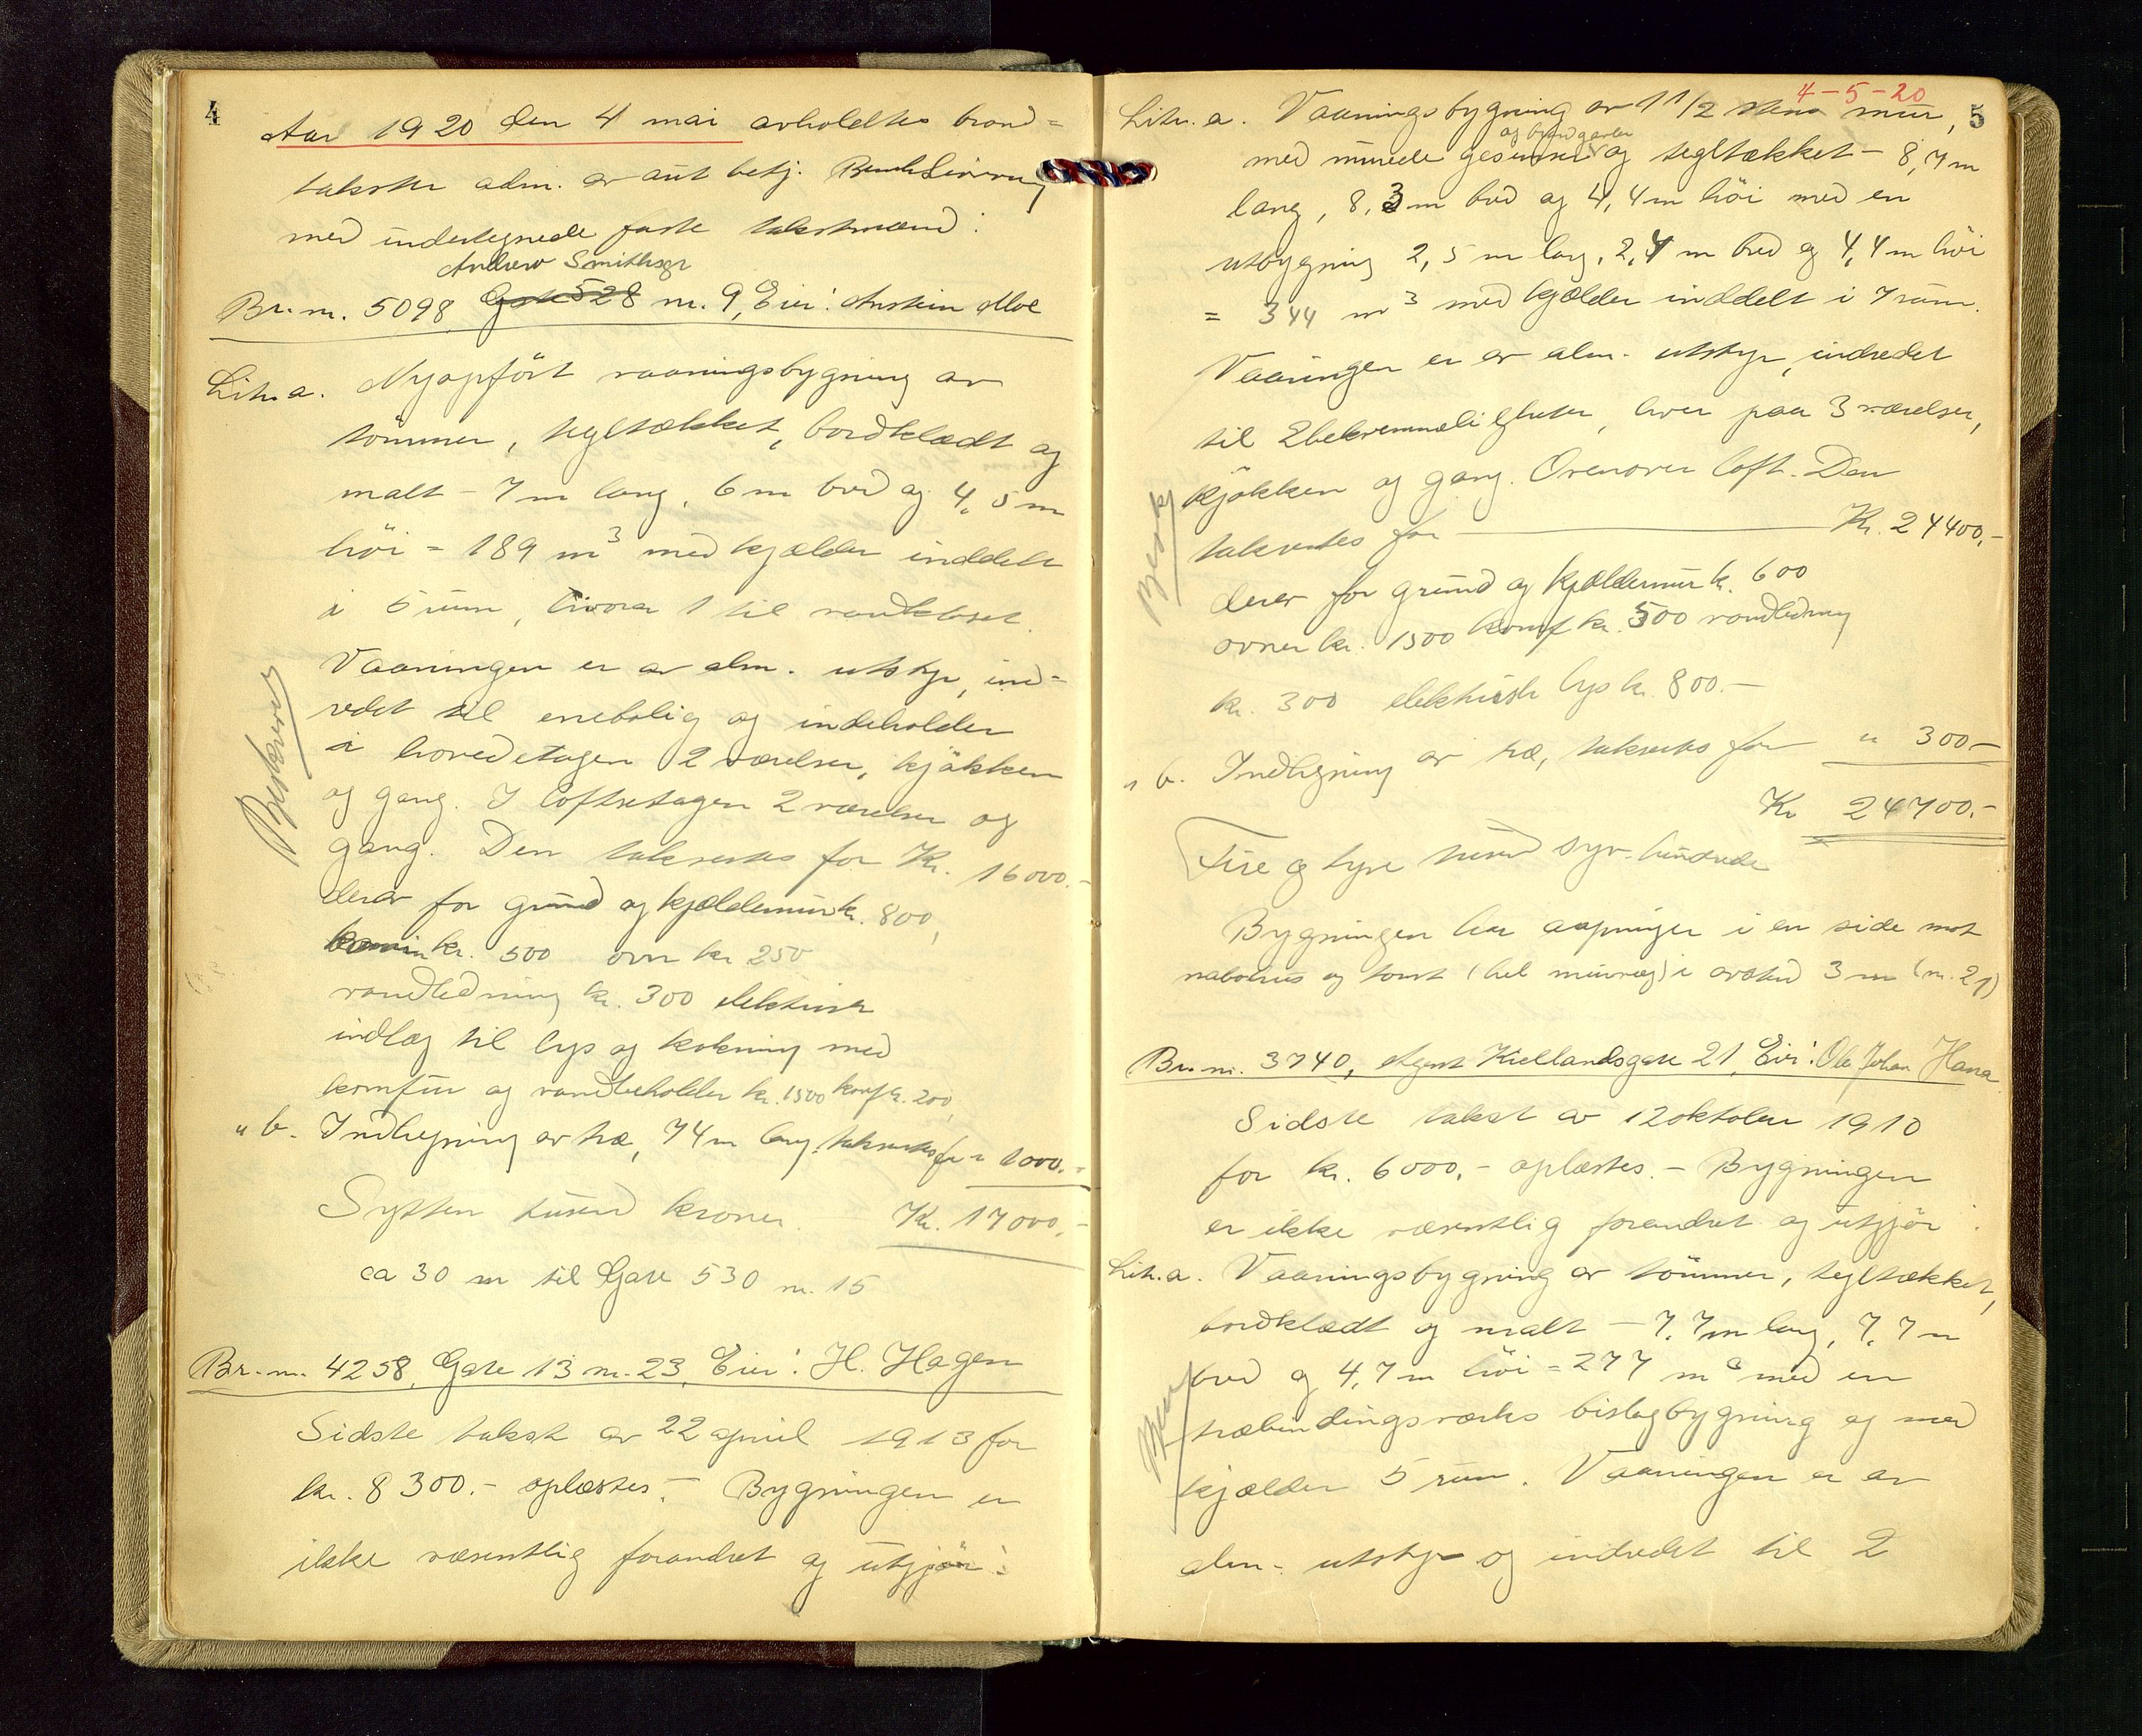 4
Aar 1920 den 4 mai avholdtes brand=
takster adm. av aut betj.
med undertegnede faste takstmænd:
Andrew Smithsgr
Br. nr. 5098 Gate 528 nr. 9, Eier: Anstein Moe
Litr. a. Nyopført vaaningsbygning av
tömmer, tegltækket, bordklædt og
malt - 7 m lang, 6 m bred og 4,5 m
höi = 189 m³ med kjælder inddelt
i 5 rum, hvorav 1 til vandkloset.
Vaaningen er av alm. utstyr, ind=
redet til enebolig og indeholder
i hovedetagen 2 værelser, kjökken
og gang. I loftsetagen 2 værelser og
gang. Den taksertes for Kr. 16000.-
derav for grund og kjældermur kr. 800,
kr. 500 ovn kr 250
vandledning kr. 300 elektrisk
indlæg til lys og kokning med
komfur og vandbeholder kr. 1500 komf kr. 200,
" b. Indhegning av træ, 74 m lang, taksertes for " 1000.-
Sytten tusend kroner. Kr. 17000.-
ca 30 m til Gate 530 nr. 15
Br. nr. 4258, Gate 13 nr. 23, Eier: H. Hagen
Sidste takst av 22 april 1913 for
kr. 8300.- oplæstes. - Bygningen er
ikke væsentlig forandret og utgjör:
Beskrevet
4-5-20
5
Litr. a. Vaaningsbygning av 1 1/2 stens mur,
og brandgavler
med murede gesimser og tegltækket - 8,7 m
lang, 8,3 m bred og 4,4 m höi med en
utbygning 2,5 m lang, 2,4 m bred og 4,4 m höi
= 344 m³ med kjælder inddelt i 7 rum.
Vaaningen er av alm. utstyr, indredet
til 2 bekvemmeligheter, hver paa 3 værelser,
kjökken og gang. Ovenover loft. Den
taksertes for Kr. 24400.-
derav for grund og kjældermur kr. 600
ovner kr. 1500 komf kr. 500 vandledning
kr. 300 elektrisk lys kr. 800.-
" b. Indhegning av træ, taksertes for " 300-
Kr 24700.-
Fire og tyve tusend syv hundrede
Bygningen har aapninger i en side mot
nabohus og tomt (hel murvæg) i avstand 3 m (nr. 21)
Br. nr. 3740, Alexander Kiellandsgate 21, Eier: Ole Johan Hana
Sidste takst av 12 oktober 1910
for kr. 6000.- oplæstes. - Bygningen
er ikke væsentlig forandret og utgjör:
Litr. a. Vaaningsbygning av tömmer, tegltækket,
bordklædt og malt - 7,7 m lang, 7,7 m
bred og 4,7 m höi = 277 m³ med en
træbindingsværks bislagbygning og med
kjælder 5 rum. Vaaningen er av
alm. utstyr og indredet til 2